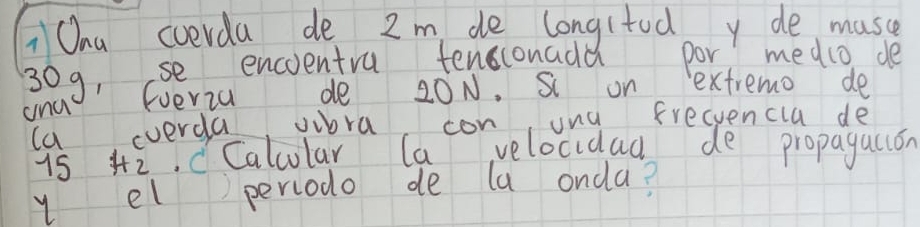 1) Una cuerda de 2m de longitud y de masa
30g, se encuentra tensionada por medio de
una fuerza de 20N. Si un extremo de
la cuerda vibra con una frecuencia de
15 Hz. ¿Calcular la velocidad de propagación
y el periodo de la onda?